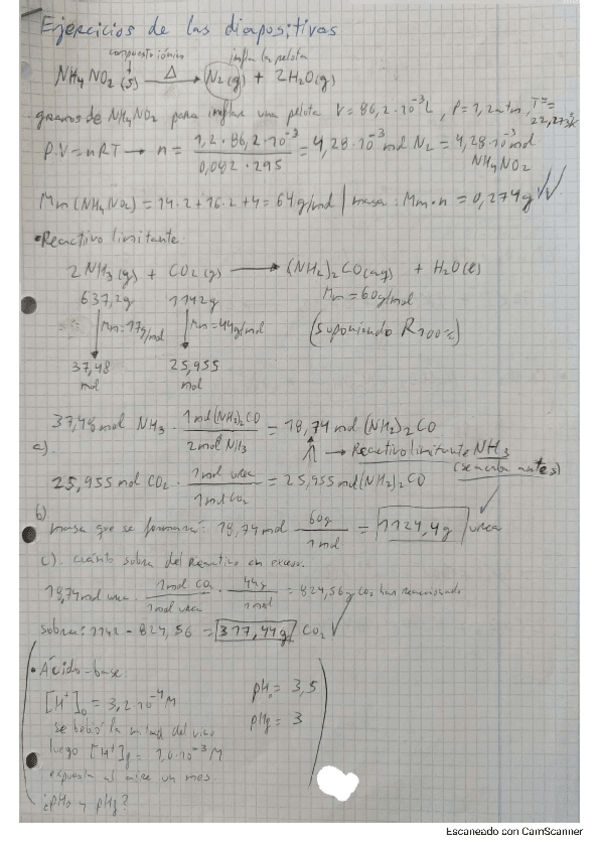 Ejercicios de las diapositivas
compuesto iónico infla la pelota
NH4NO2(s) —Δ→ N2(g) + 2H2O(g)
gramos de NH4NO2 para inflar una pelota V = 86,2·10⁻³L, P = 1,2atm, T =
P.V = nRT → n = 1,2 · 86,2·10⁻³ / 0,082 · 295 = 4,28·10⁻³ mol N2 = 4,28·10⁻³ mol NH4NO2
Mm(NH4NO2) = 14·2+16·2+4 = 64g/mol | masa: Mm·n = 0,274g
• Reactivo limitante:
2NH3(g) + CO2(g) → (NH2)2CO(aq) + H2O(l)
637,2g 1142g Mm = 60g/mol
Mm=17g/mol Mm=44g/mol (suponiendo R100%)
37,48 mol 25,955 mol
37,48 mol NH3 · 1mol(NH2)2CO / 2mol NH3 = 18,74 mol (NH2)2CO
a). → Reactivo limitante NH3
(se acaba antes)
25,955 mol CO2 · 1mol urea / 1mol CO2 = 25,955 mol (NH2)2CO
b).
masa que se formará: 18,74 mol · 60g / 1mol = 1124,4g urea
c). cuánto sobra del Reactivo en exceso.
18,74 mol urea · 1mol CO2 / 1mol urea · 44g / 1mol = 824,56g CO2 han reaccionado
sobra: 1142 - 824,56 = 317,44g CO2
• Ácido-base:
[H⁺]₀ = 3,2·10⁻⁴M pH₀ = 3,5
se bebió la mitad del vino pHf = 3
luego [H⁺]f = 1,0·10⁻³M
expuesta al aire un mes
¿pH₀ y pHf?
Escaneado con CamScanner